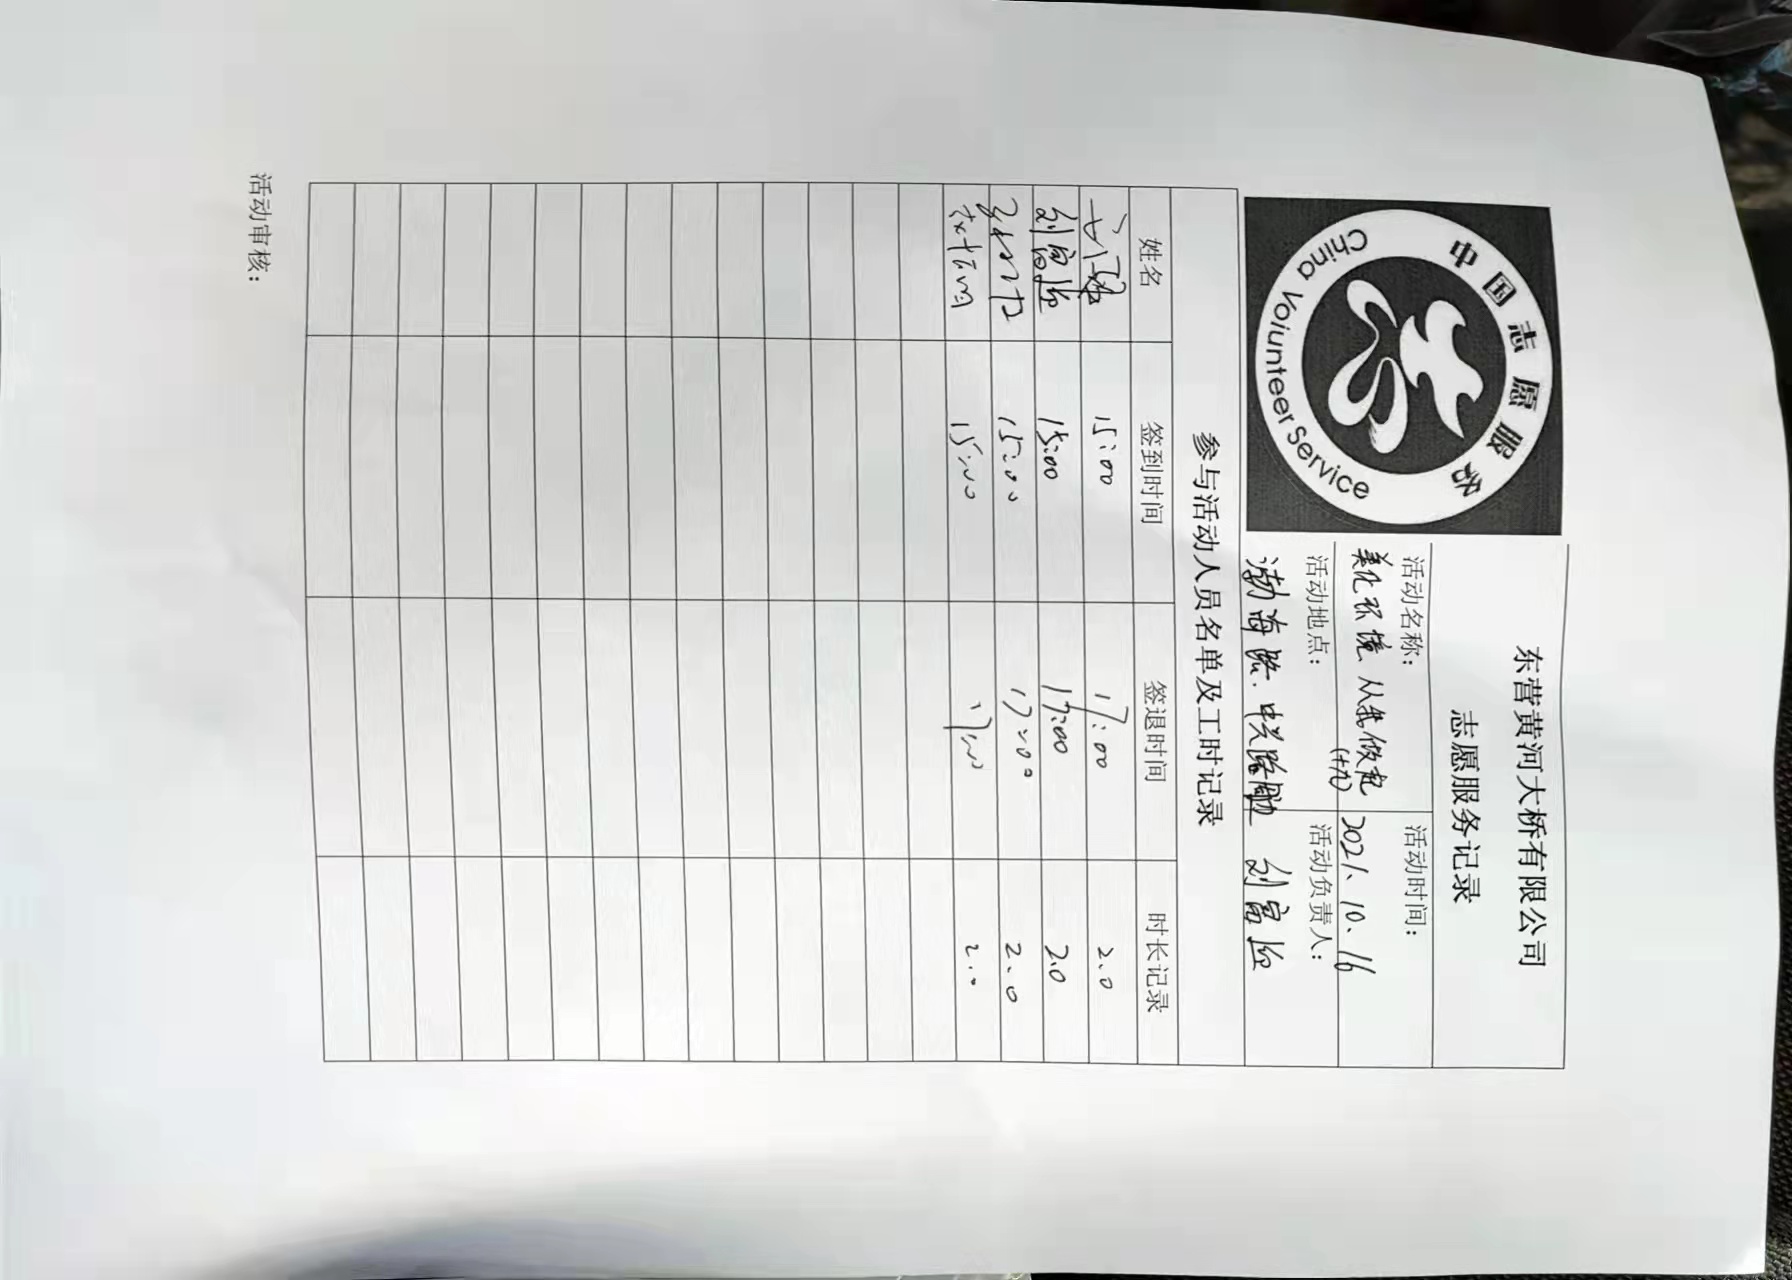 中国志愿服务
China Voiunteer Service
东营黄河大桥有限公司
志愿服务记录
活动名称：
美化环境 从我做起
(十九)
活动时间：
2021.10.16
活动地点：
渤海路.中兴路
活动负责人：
刘富
参与活动人员名单及工时记录
姓名 签到时间 签退时间 时长记录
15:00 17:00 2.0
刘富 15:00 17:00 2.0
15:00 17:00 2.0
15:00 17:00 2.0
活动审核：